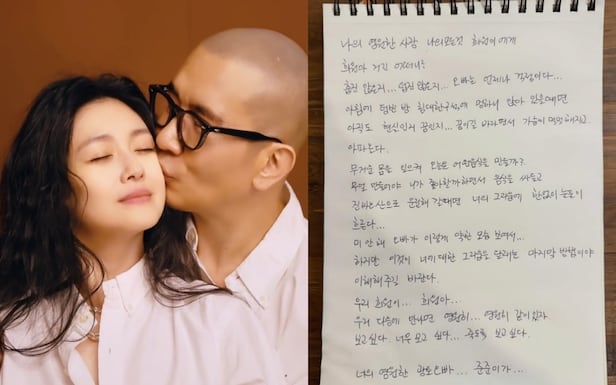 나의 영원한 사랑 나의모든것 희원이에게
희원아 거긴 어떠니?
춥진 않은지... 덥진 않은지... 오빠는 언제나 걱정이다...
아침에 텅빈 방 침대한구석에 멍하니 앉아 있을때면
아직도 현실인지 꿈인지... 꿈이길 바라면서 가슴이 먹먹해지고
아파온다.
무거운 몸을 일으켜 오늘은 어떤음식을 만들까?
무얼 만들어야 니가 좋아할까하면서 음식을 싸들고
진바오산으로 운전해 갈때면 너의 그리움에 한없이 눈물이
흐른다...
미안해 오빠가 이렇게 약한 모습 보여서...
하지만 이것이 너에대한 그리움을 달래는 마지막 방법이야
이해해주길 바란다.
우리 희원이... 희원아...
우리 다음에 만나면 영원히... 영원히 같이있자
보고싶다. 너무 보고 싶다... 죽도록 보고싶다.
너의 영원한 광토오빠... 준준이가...